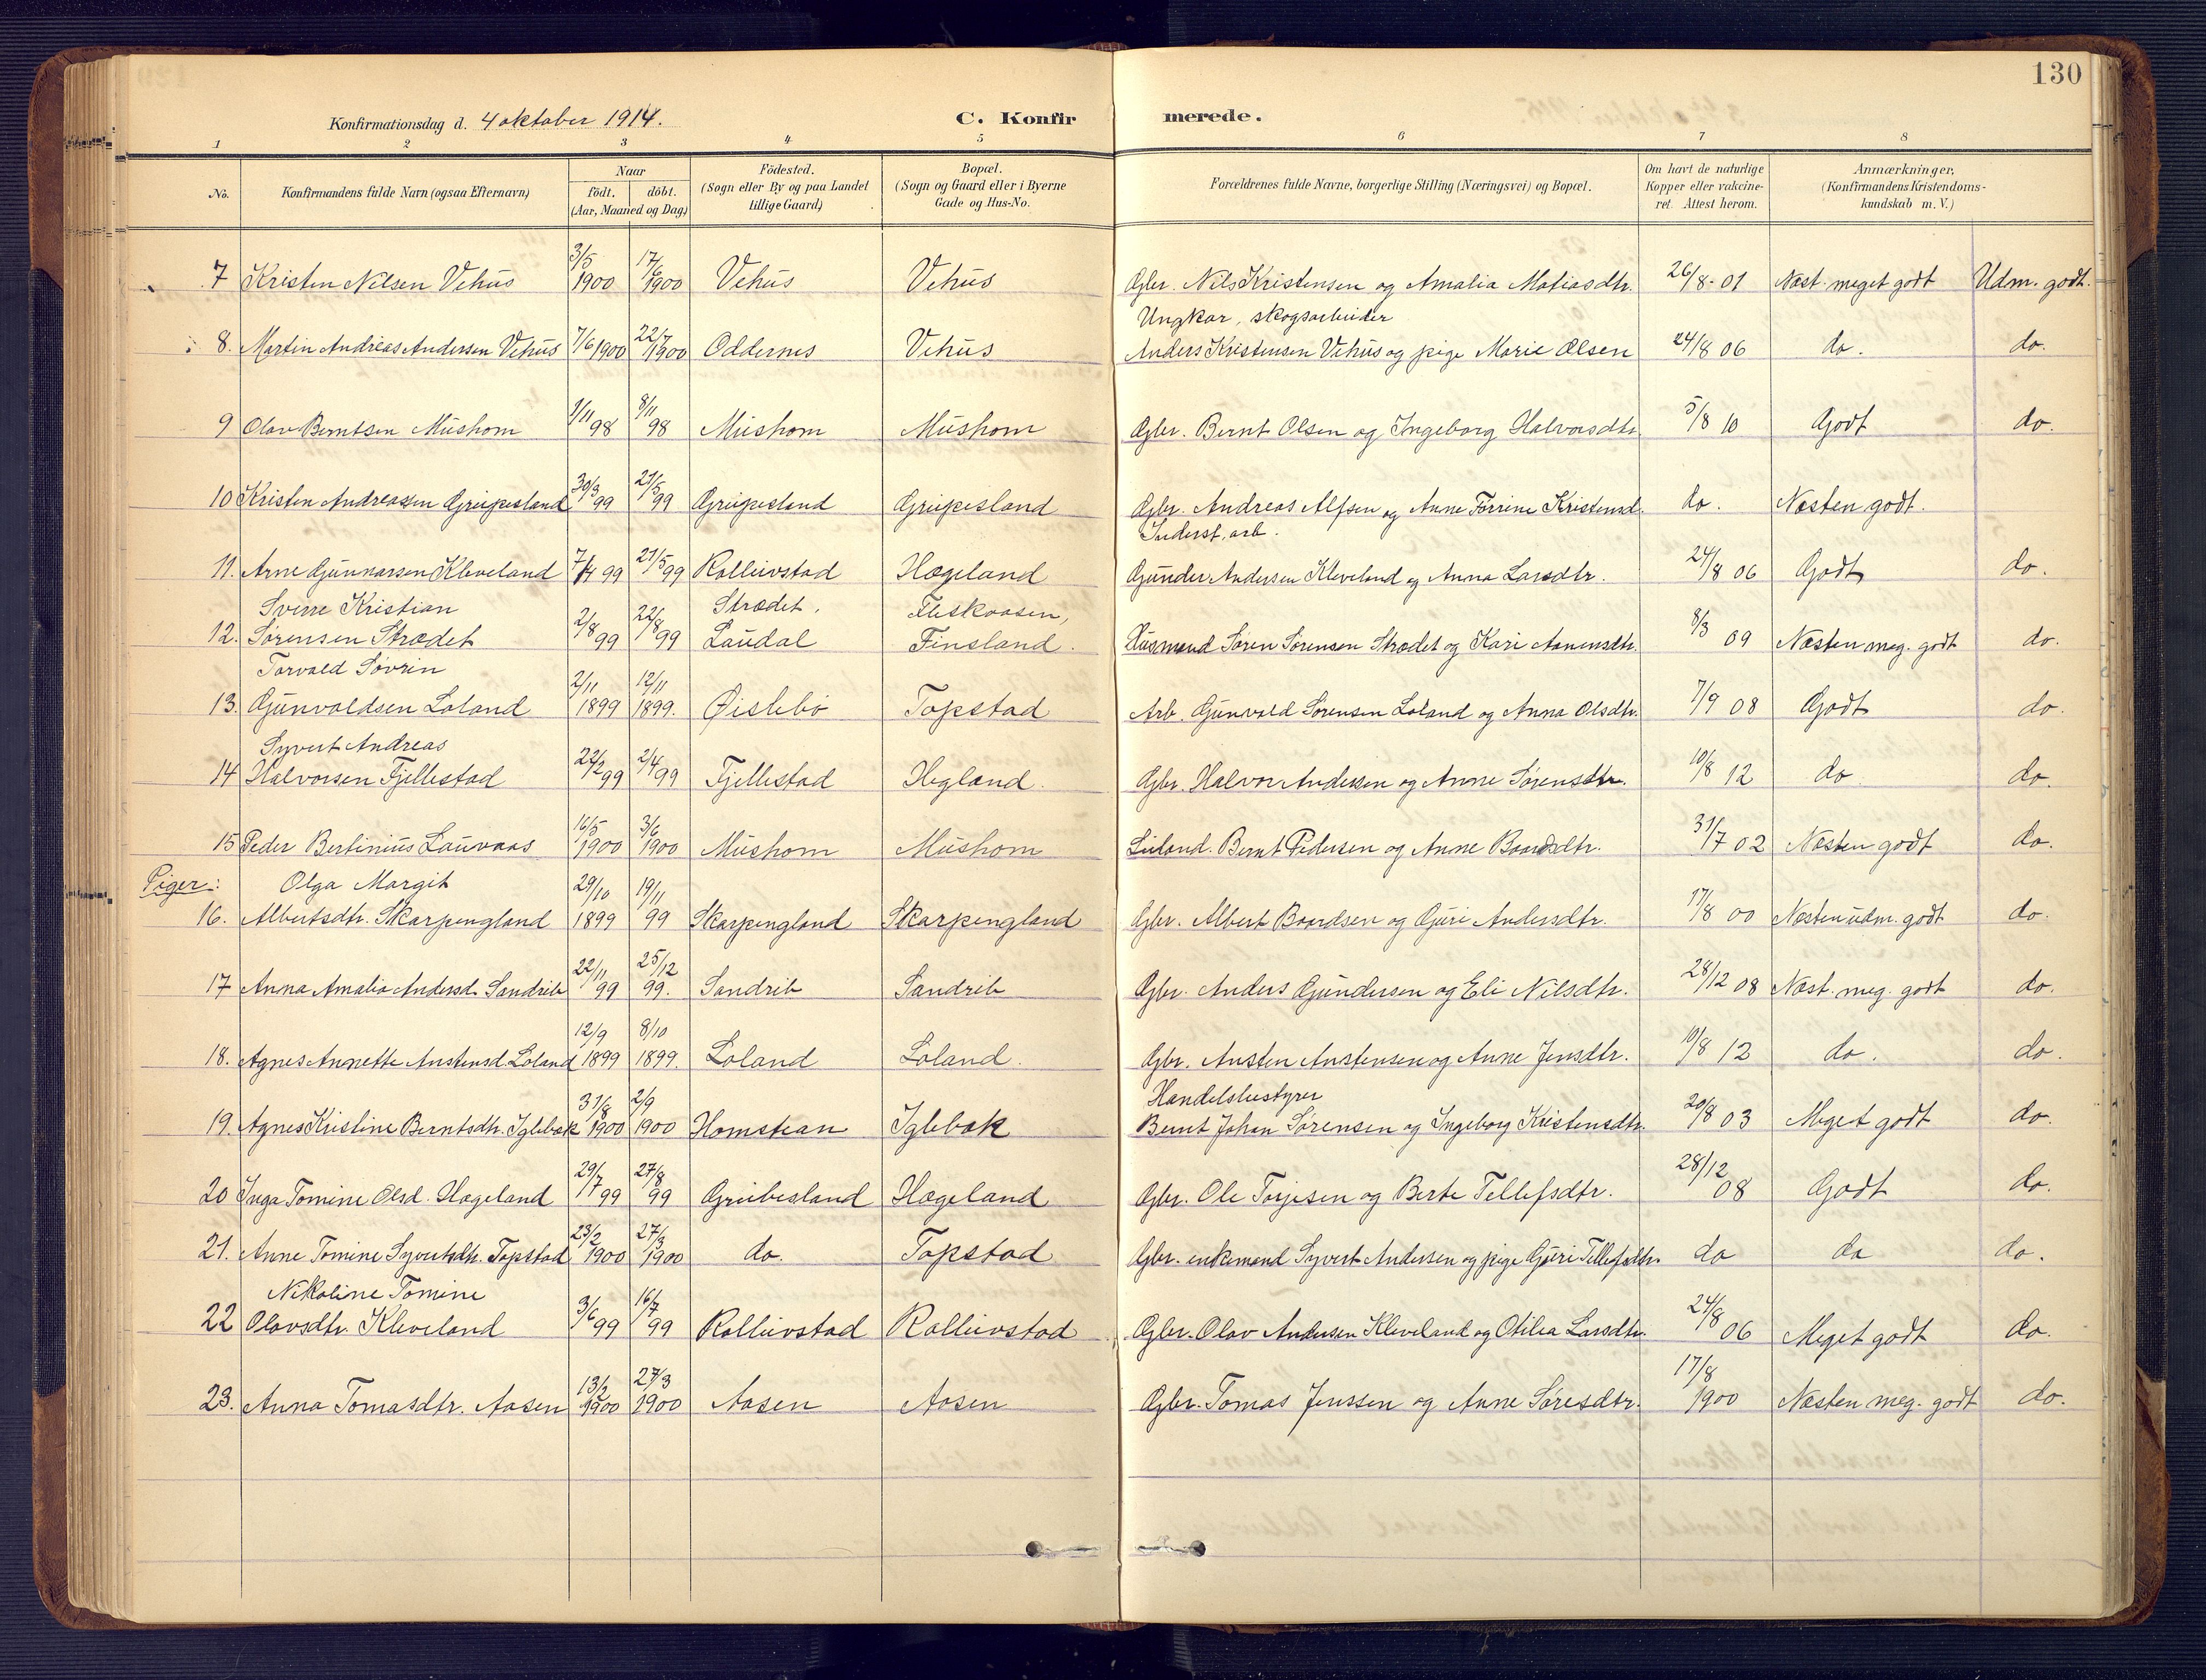 130
Konfirmationsdag d. 4 oktober 1914.
C. Konfirmerede.
1 2 3 4 5 6 7 8
No.
Konfirmandens fulde Navn (ogsaa Efternavn)
Naar
födt. döbt.
(Aar, Maaned og Dag)
Födested.
(Sogn eller By og paa Landet
tillige Gaard)
Bopæl.
(Sogn og Gaard eller i Byerne
Gade og Hus-No.
Forældrenes fulde Navne, borgerlige Stilling (Næringsvei) og Bopæl.
Om havt de naturlige
Kopper eller vakcine-
ret. Attest herom.
Anmærkninger,
(Konfirmandens Kristendoms-
kundskab m. V.)
7 Kristen Nilsen Vehus 3/5 1900 17/6 1900 Vehus Vehus Gbr. Nils Kristensen og Amalia Matiasdtr. 26/8-01 Næst. meget godt Udm. godt.
Ungkar, skogsarbeider
8. Martin Andreas Andersen Vehus 7/6 1900 22/7 1900 Oddernes Vehus Anders Kristensen Vehus og pige Marie Olsen 24/8 06 do. do.
9 Olav Berntsen Mushom 1/11 98 8/11 98 Mushom Mushom Gbr. Bernt Olsen og Ingeborg Halvorsdtr. 5/8 10 Godt do.
10 Kristen Andreassen Greipesland 30/3 99 21/5 99 Greipesland Greipesland Gbr. Andreas Alfsen og Anne Torrine Kristensd. do. Næsten godt.
Inderst, arb.
11. Arne Gunnarsen Kleveland 7/4 99 21/5 99 Rolleivstad Hægeland Gunder Andersen Kleveland og Anna Larsdtr. 24/8 06 Godt do.
Sverre Kristian Strædet, Fleskaasen,
12. Sørensen Strædet 2/8 99 22/8 99 Laudal Finsland. Husmand Søren Sørensen Strædet og Kari Aanensdtr. 8/3 09 Næsten meg. godt do.
Torvald Søvrin
13. Gunvaldsen Loland 2/11 1899 12/11 1899. Øislebø Topstad Arb. Gunvald Sørensen Loland og Anna Olsdtr. 7/9 08 Godt do.
Syvert Andreas
14 Halvorsen Fjellestad 22/2 99 2/4 99 Fjellestad Hegland. Gbr. Halvor Andersen og Anne Sørensdtr. 10/8 12 do do.
15 Peder Bertinius Lauvaas 16/5 1900 3/6 1900 Mushom Mushom Leiland. Bernt Pedersen og Anne Baardsdtr. 31/7 02 Næsten godt do.
Piger: Olga Margit
16. Albertsdtr. Skarpengland 29/10 1899 19/11 99 Skarpengland Skarpengland Gbr. Albert Baardsen og Guri Andersdtr. 17/8 00 Næsten udm. godt do.
17 Anna Amalia Andersd. Sandrib 22/11 99 25/12 99. Sandrib Sandrib Gbr. Anders Gundersen og Eli Nilsdtr. 28/12 08 Næst. meg. godt do.
18. Agnes Annette Anstensd. Loland 12/9 1899 8/10 1899. Loland Loland. Gbr. Austen Anstensen og Anne Jensdtr. 10/8 12 do. do.
Handelsbestyrer
19. Agnes Kristine Berntsdtr. Iglebæk 31/8 1900 2/9 1900 Homstean Iglebæk Bernt Johan Sørensen og Ingeborg Kristensdtr. 20/8 03 Meget godt do.
20 Inga Tomine Olsd. Hægeland 29/7 99 27/8 99 Greibesland Hægeland Gbr. Ole Torjesen og Berte Tellefsdtr. 28/12 08 Godt do.
21. Anne Tomine Syvertsdtr. Topstad 23/2 1900 27/3 1900 do. Topstad Gbr. enkemand Syvert Andersen og pige Guri Tellefsdtr. do do do.
Nikoline Tomine
22 Olavsdtr. Kleveland 3/6 99 16/7 99 Rolleivstad Rolleivstad Gbr. Olav Andersen Kleveland og Otilia Larsdtr. 24/8 06 Meget godt do.
23. Anna Tomasdtr. Aasen 13/2 1900 27/3 1900 Aasen Aasen Gbr. Tomas Jenssen og Anne Søresdtr. 17/8 1900 Næsten meg. godt do.